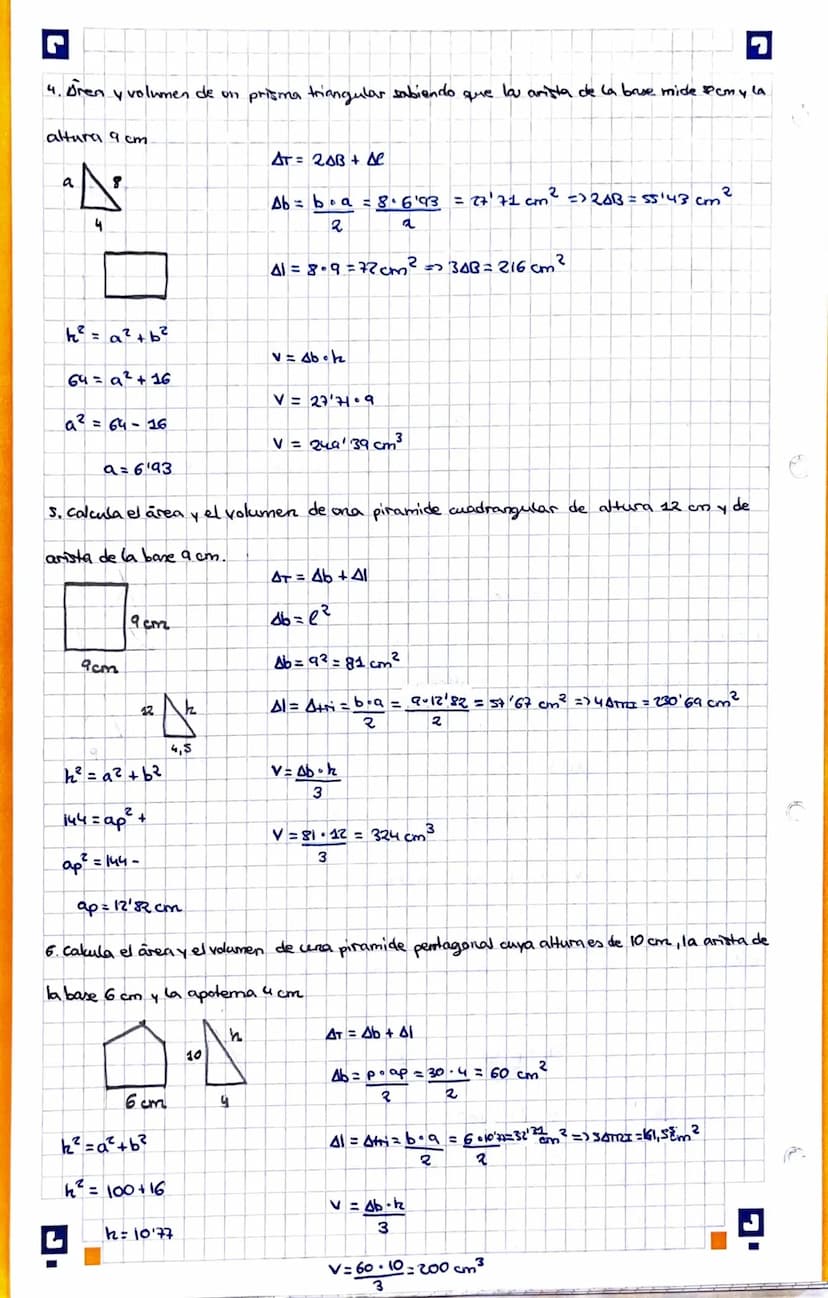 4. Área y volumen de un prisma triangular sabiendo que la arista de la base mide 8cm y la
altura 9 cm
AT = 2AB + Al
a 8
4
Ab = b·a/2 = 8·6'93/2 = 27'71 cm² => 2AB = 55'43 cm²
Al = 8·9 = 72cm² => 3AB = 216 cm²
h² = a² + b²
64 = a² + 16
a² = 64 - 16
a = 6'93
V = Ab·h
V = 27'71·9
V = 249'39 cm³
5. Calcula el área y el volumen de una piramide cuadrangular de altura 12 cm y de
arista de la base 9 cm.
9cm
9cm
12 h
4,5
AT = Ab + Al
Ab = l²
Ab = 9² = 81 cm²
Al = Atri = b·a/2 = 9·12'82/2 = 57'67 cm² => 4 ATRI = 230'69 cm²
h² = a² + b²
144 = ap² +
ap² = 144 -
ap = 12'82 cm
V = Ab·h/3
V = 81·12/3 = 324 cm³
6. Calcula el área y el volumen de una piramide pentagonal cuya altura es de 10 cm, la arista de
la base 6 cm y la apotema 4 cm
6 cm
10 h
4
AT = Ab + Al
Ab = p·ap/2 = 30·4/2 = 60 cm²
Al = Atri = b·a/2 = 6·10'77/2 = 32'31 cm² => 5ATRI = 161,55 cm²
h² = a² + b²
h² = 100 + 16
h = 10'77
V = Ab·h/3
V = 60·10/3 = 200 cm³